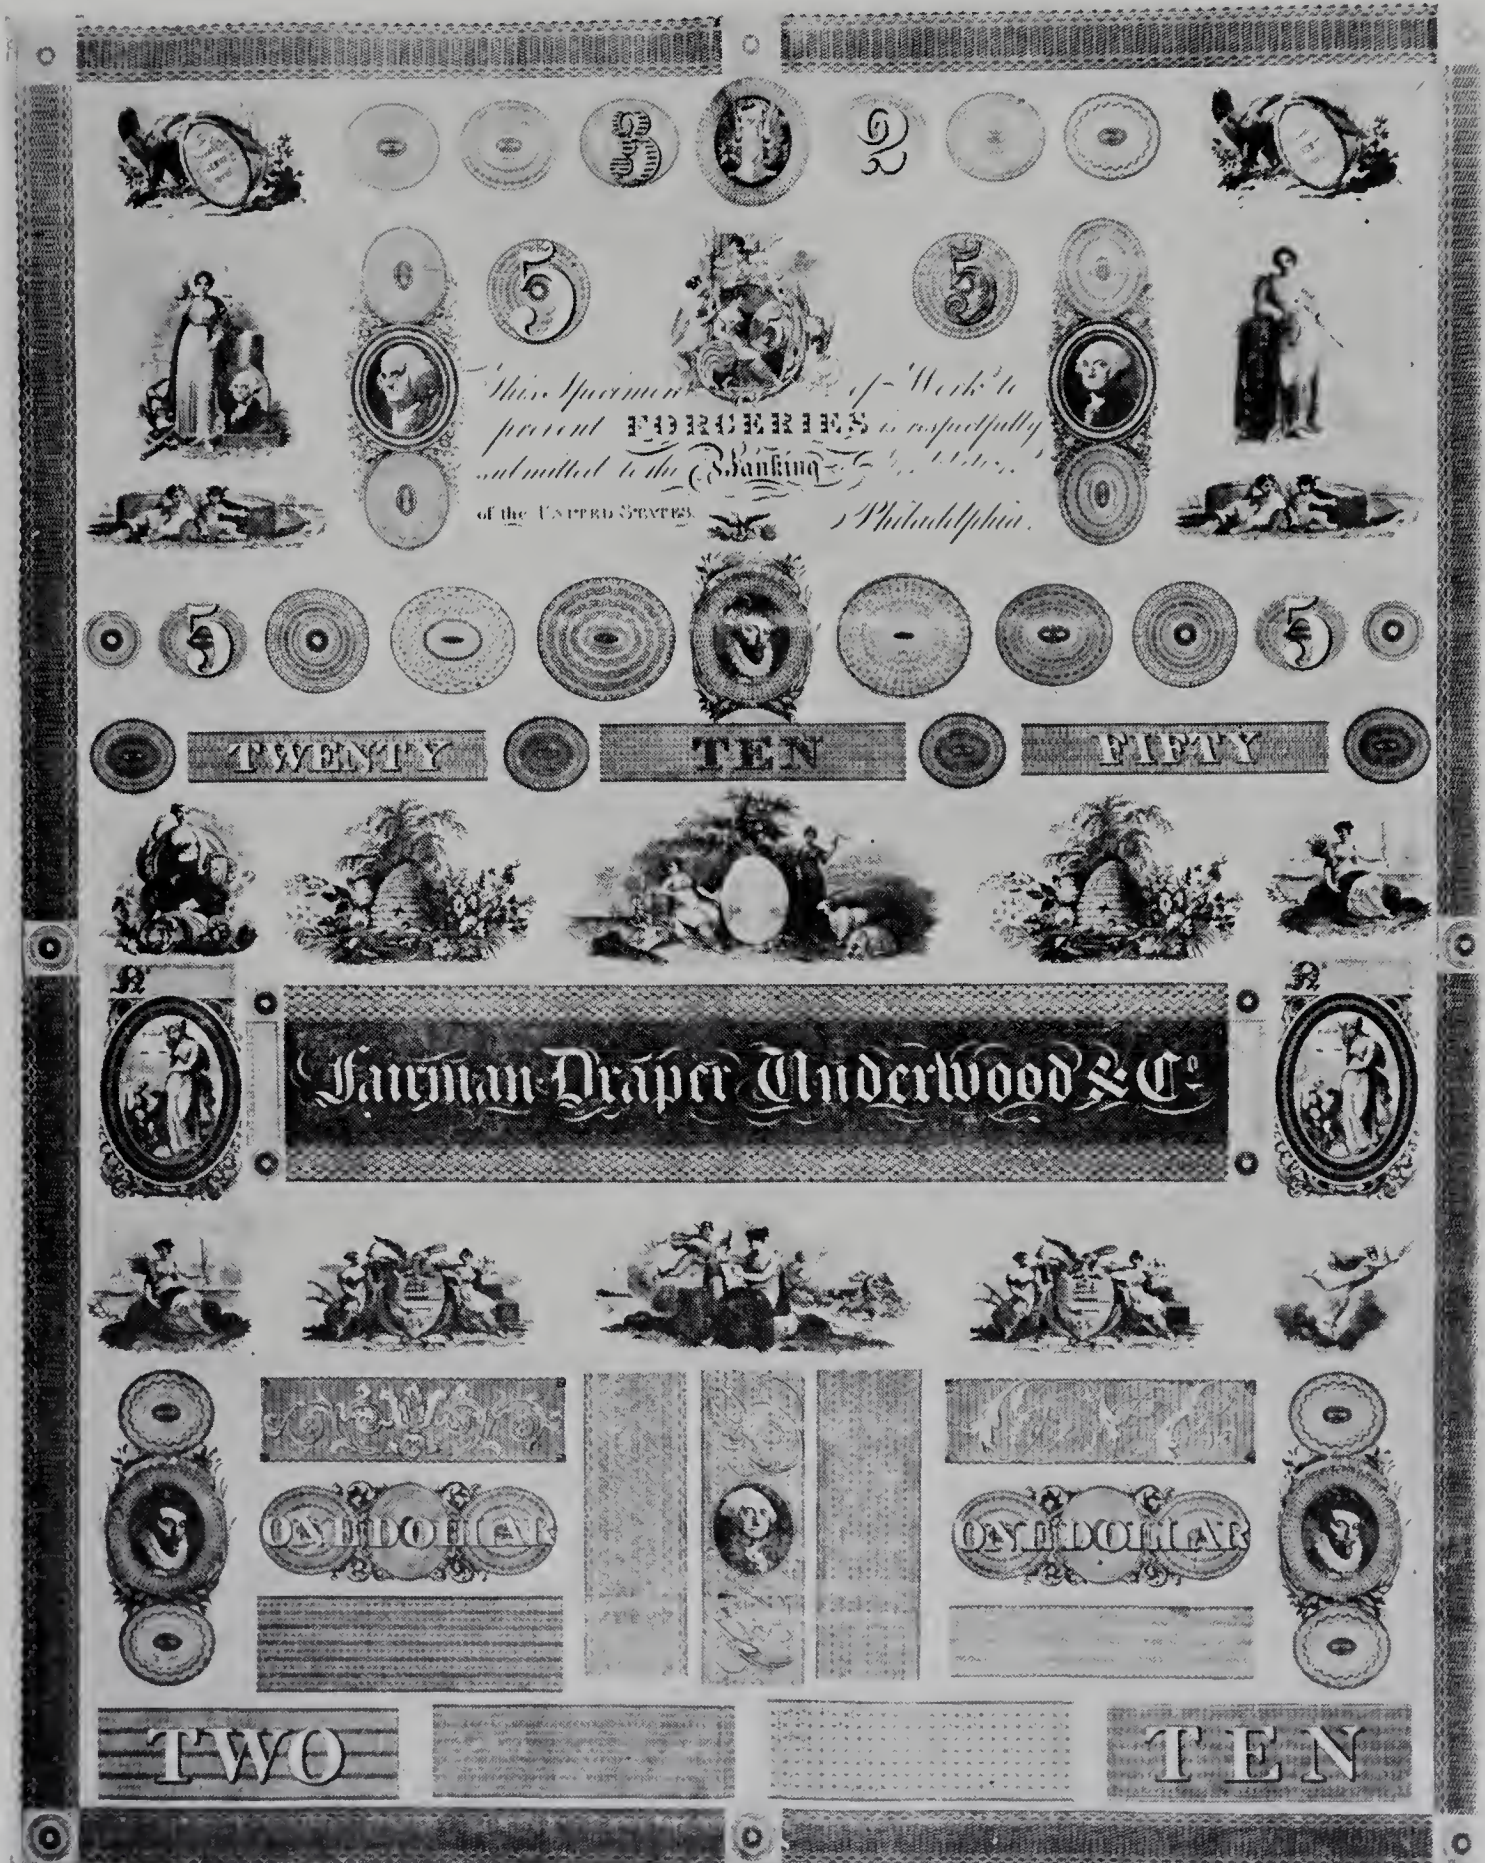 3 1 2
5 5
This Specimen of Work to
prevent FORGERIES is respectfully
submitted to the Banking
of the UNITED STATES. Philadelphia.
5 5
TWENTY TEN FIFTY
No No
Fairman Draper Underwood & Co
ONE DOLLAR ONE DOLLAR
TWO TEN